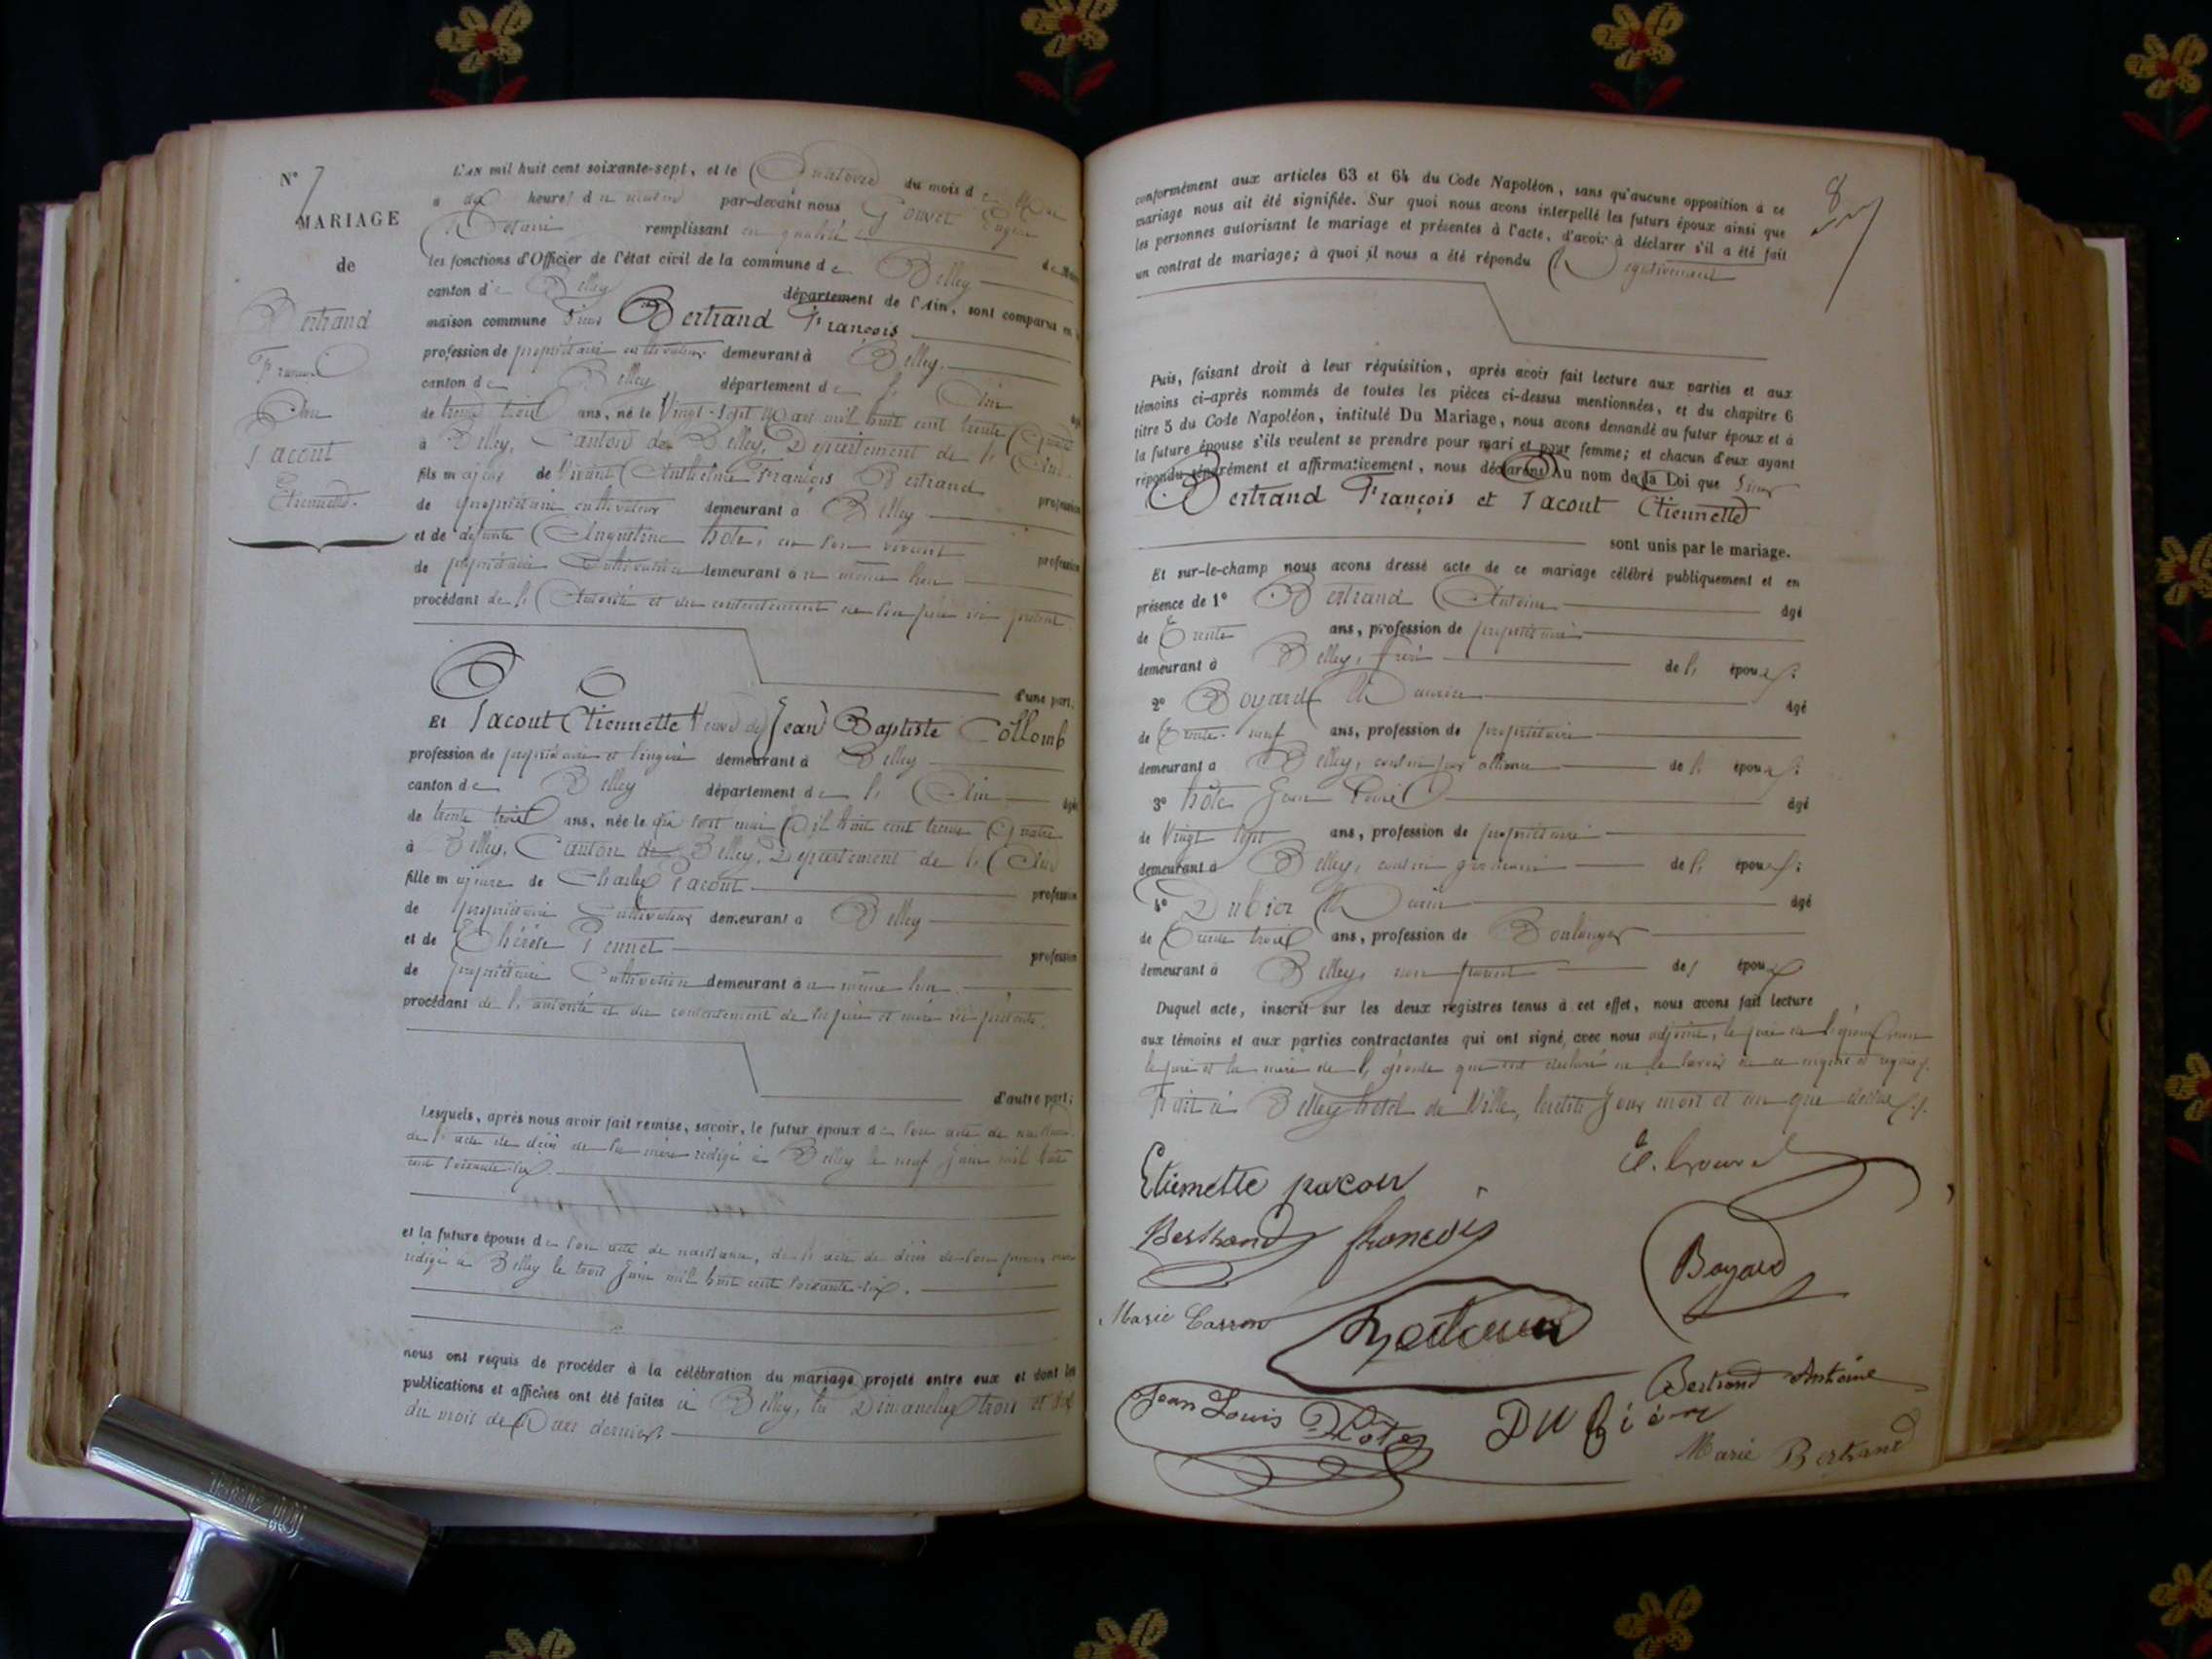 N° 7
MARIAGE
de
Bertrand
François
Et
Pacout
Etiennette.
L'AN mil huit cent soixante-sept, et le Quatorze du mois de
à dix heures du matin par-devant nous Gouvet Eugène
Notaire remplissant en qualité
les fonctions d'Officier de l'état civil de la commune de Belley
canton de Belley département de l'Ain, sont comparus en
maison commune Sieur Bertrand François
profession de propriétaire cultivateur demeurant à Belley.
canton de Belley département de l'Ain
de trente trois ans, né le Vingt-Sept Mars mil huit cent trente Quatre
à Belley, Canton de Belley, Département de l'Ain.
fils majeur de Vivant Anthelme François Bertrand profession
de propriétaire cultivateur demeurant à Belley
et de défunte Augustine hôte, en son vivant profession
de propriétaire Cultivatrice demeurant à u même lieu
procédant de l'Autorité et du consentement de son père ici présent.
d'une part,
Et Pacout Etiennette Veuve de Jean Baptiste Collomb
profession de propriétaire et lingère demeurant à Belley
canton de Belley département de l'Ain âgée
de trente trois ans, née le mai Mil huit cent trente Quatre
à Belley, Canton de Belley, Département de l'Ain
fille majeure de Charles Pacout profession
de propriétaire Cultivateur demeurant à Belley
et de Thérèse profession
de propriétaire Cultivatrice demeurant à u même lieu.
procédant de l'autorité et du consentement de ses père et mère ici présents.
d'autre part;
Lesquels, après nous avoir fait remise, savoir, le futur époux de son acte de naissance
de l'acte de décès de sa mère rédigé à Belley le neuf Juin mil huit
cent soixante-six.
et la future épouse de son acte de naissance, de l'acte de décès de son premier mari
rédigé à Belley le trois Juin mil huit cent soixante-six.
nous ont requis de procéder à la célébration du mariage projeté entre eux et dont les
publications et affiches ont été faites à Belley, les Dimanches trois et dix
du mois de Mars dernier.
8
conformément aux articles 63 et 64 du Code Napoléon, sans qu'aucune opposition à ce
mariage nous ait été signifiée. Sur quoi nous avons interpellé les futurs époux ainsi que
les personnes autorisant le mariage et présentes à l'acte, d'avoir à déclarer s'il a été fait
un contrat de mariage; à quoi il nous a été répondu Négativement
Puis, faisant droit à leur réquisition, après avoir fait lecture aux parties et aux
témoins ci-après nommés de toutes les pièces ci-dessus mentionnées, et du chapitre 6
titre 5 du Code Napoléon, intitulé Du Mariage, nous avons demandé au futur époux et à
la future épouse s'ils veulent se prendre pour mari et pour femme; et chacun d'eux ayant
répondu séparément et affirmativement, nous déclarons Au nom de la Loi que Sieur
Bertrand François et Pacout Etiennette
sont unis par le mariage.
Et sur-le-champ nous avons dressé acte de ce mariage célébré publiquement et en
présence de 1° Bertrand Antoine âgé
de Trente ans, profession de propriétaire
demeurant à Belley, frère de l'époux;
2° Boyard Maurice âgé
de Trente-neuf ans, profession de propriétaire
demeurant à Belley, cousin par alliance de l'époux;
3° hôte Jean Louis âgé
de Vingt Sept ans, profession de propriétaire
demeurant à Belley, cousin germain de l'époux;
4° Dubier Marin âgé
de Trente trois ans, profession de Boulanger
demeurant à Belley, non parent des époux
Duquel acte, inscrit sur les deux registres tenus à cet effet, nous avons fait lecture
aux témoins et aux parties contractantes qui ont signé avec nous adjoint, le père de l'époux, non
le père et la mère de l'épouse qui ont déclaré ne le savoir de ce enquis et requis.
Fait à Belley hôtel de Ville, lesdits Jour mois et an que dessus.
Etiennette pacout
E. Gouvet
Bertrand françois
Boyard
Marie Carron
Bertrand Antoine
Jean Louis Hote
DUBier
Marie Bertrand